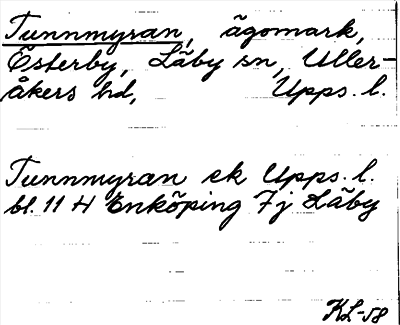 Tunnmyran, ägomark,
Österby, Läby sn, Uller-
åkers hd, Upps. l.
Tunnmyran ek Upps. l.
bl. 11 H Enköping 7j Läby
KL-58